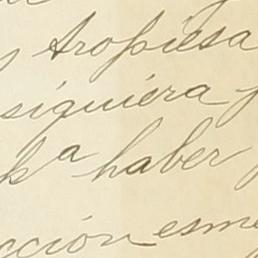 tropiesa
siquiera
a haber
cción esme